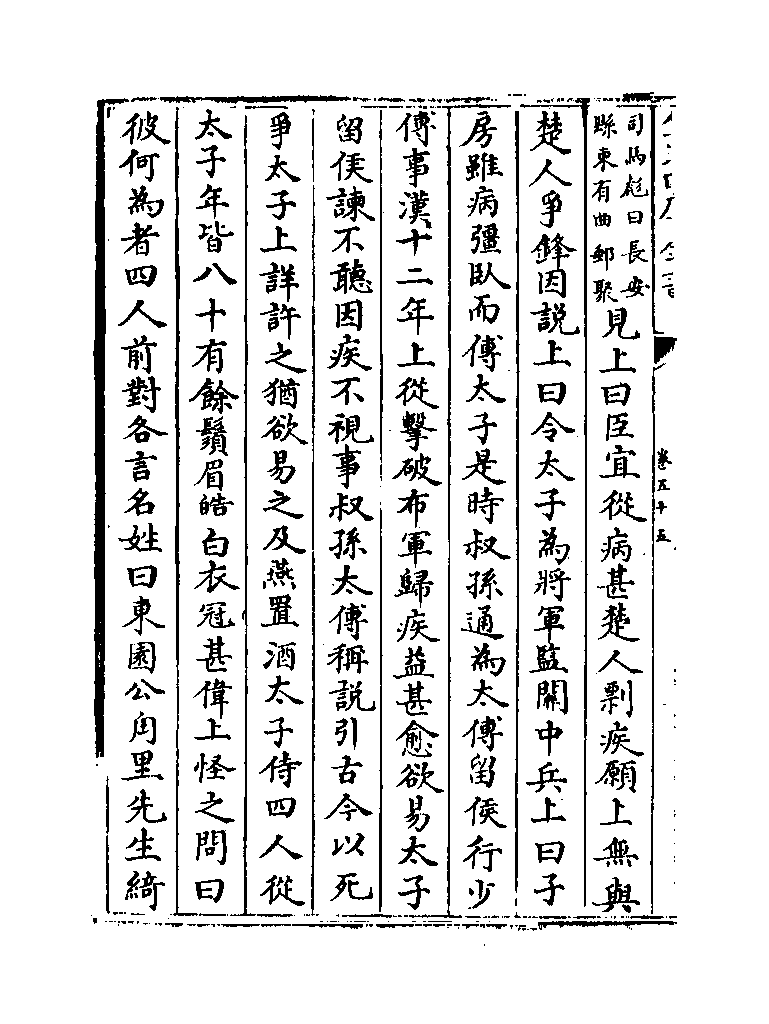 司馬彪曰長安
縣東有曲郵聚
見上曰臣宜從病甚楚人剽疾願上無與
楚人爭鋒因說上曰令太子為將軍監關中兵上曰子
房雖病彊臥而傅太子是時叔孫通為太傅留侯行少
傅事漢十二年上從擊破布軍歸疾益甚愈欲易太子
留侯諫不聽因疾不視事叔孫太傅稱說引古今以死
爭太子上詳許之猶欲易之及燕置酒太子侍四人從
太子年皆八十有餘鬚眉皓白衣冠甚偉上怪之問曰
彼何為者四人前對各言名姓曰東園公甪里先生綺
卷五十五